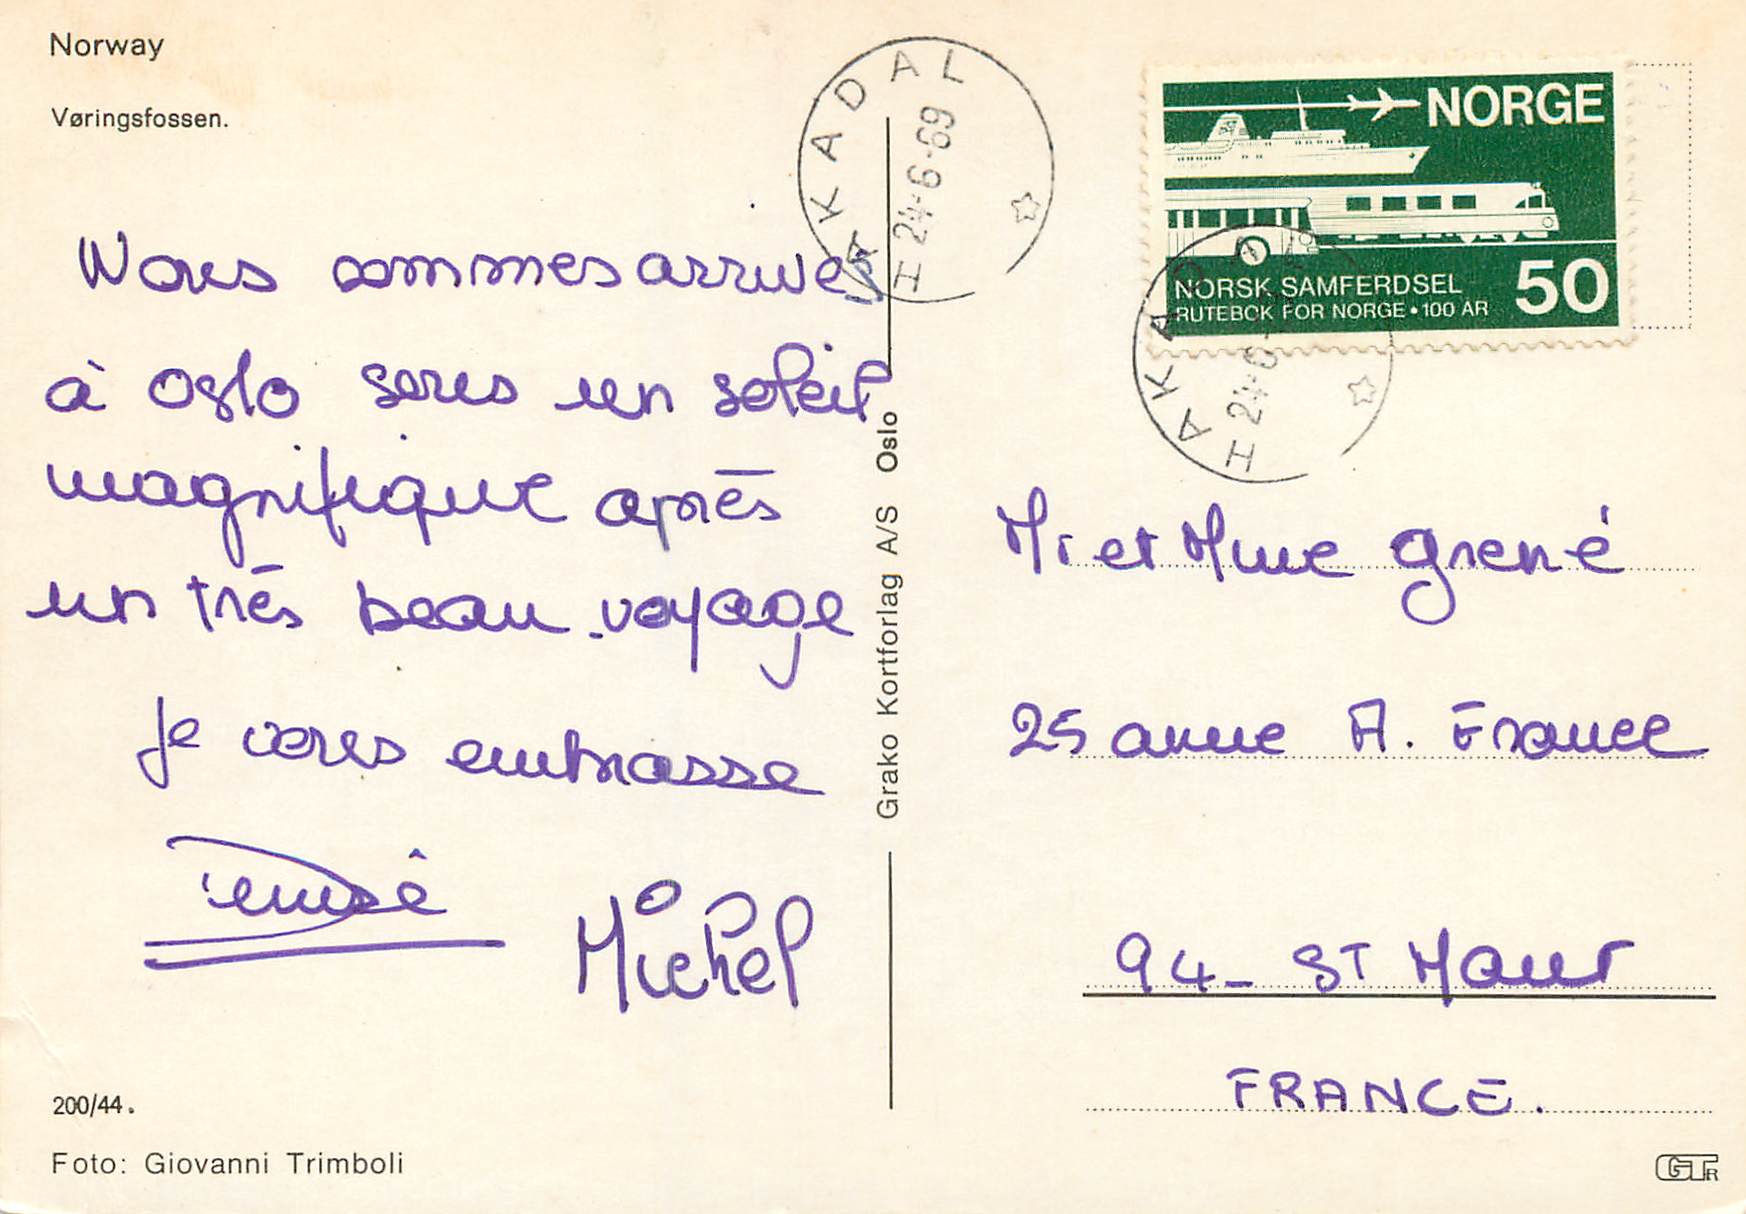 Norway
Vøringsfossen.
Nous sommes arrivés
à Oslo sous un soleil
magnifique après
un très beau voyage
Je vous embrasse
Denise
Michel
200/44.
Foto: Giovanni Trimboli
Grako Kortforlag A/S Oslo
HAKADAL
24-6-69
NORGE
NORSK SAMFERDSEL
RUTEBOK FOR NORGE • 100 ÅR
50
HAKADA
24-6-
Mr et Mme Grené
25 avenue A. France
94- ST Maur
FRANCE.
GTR